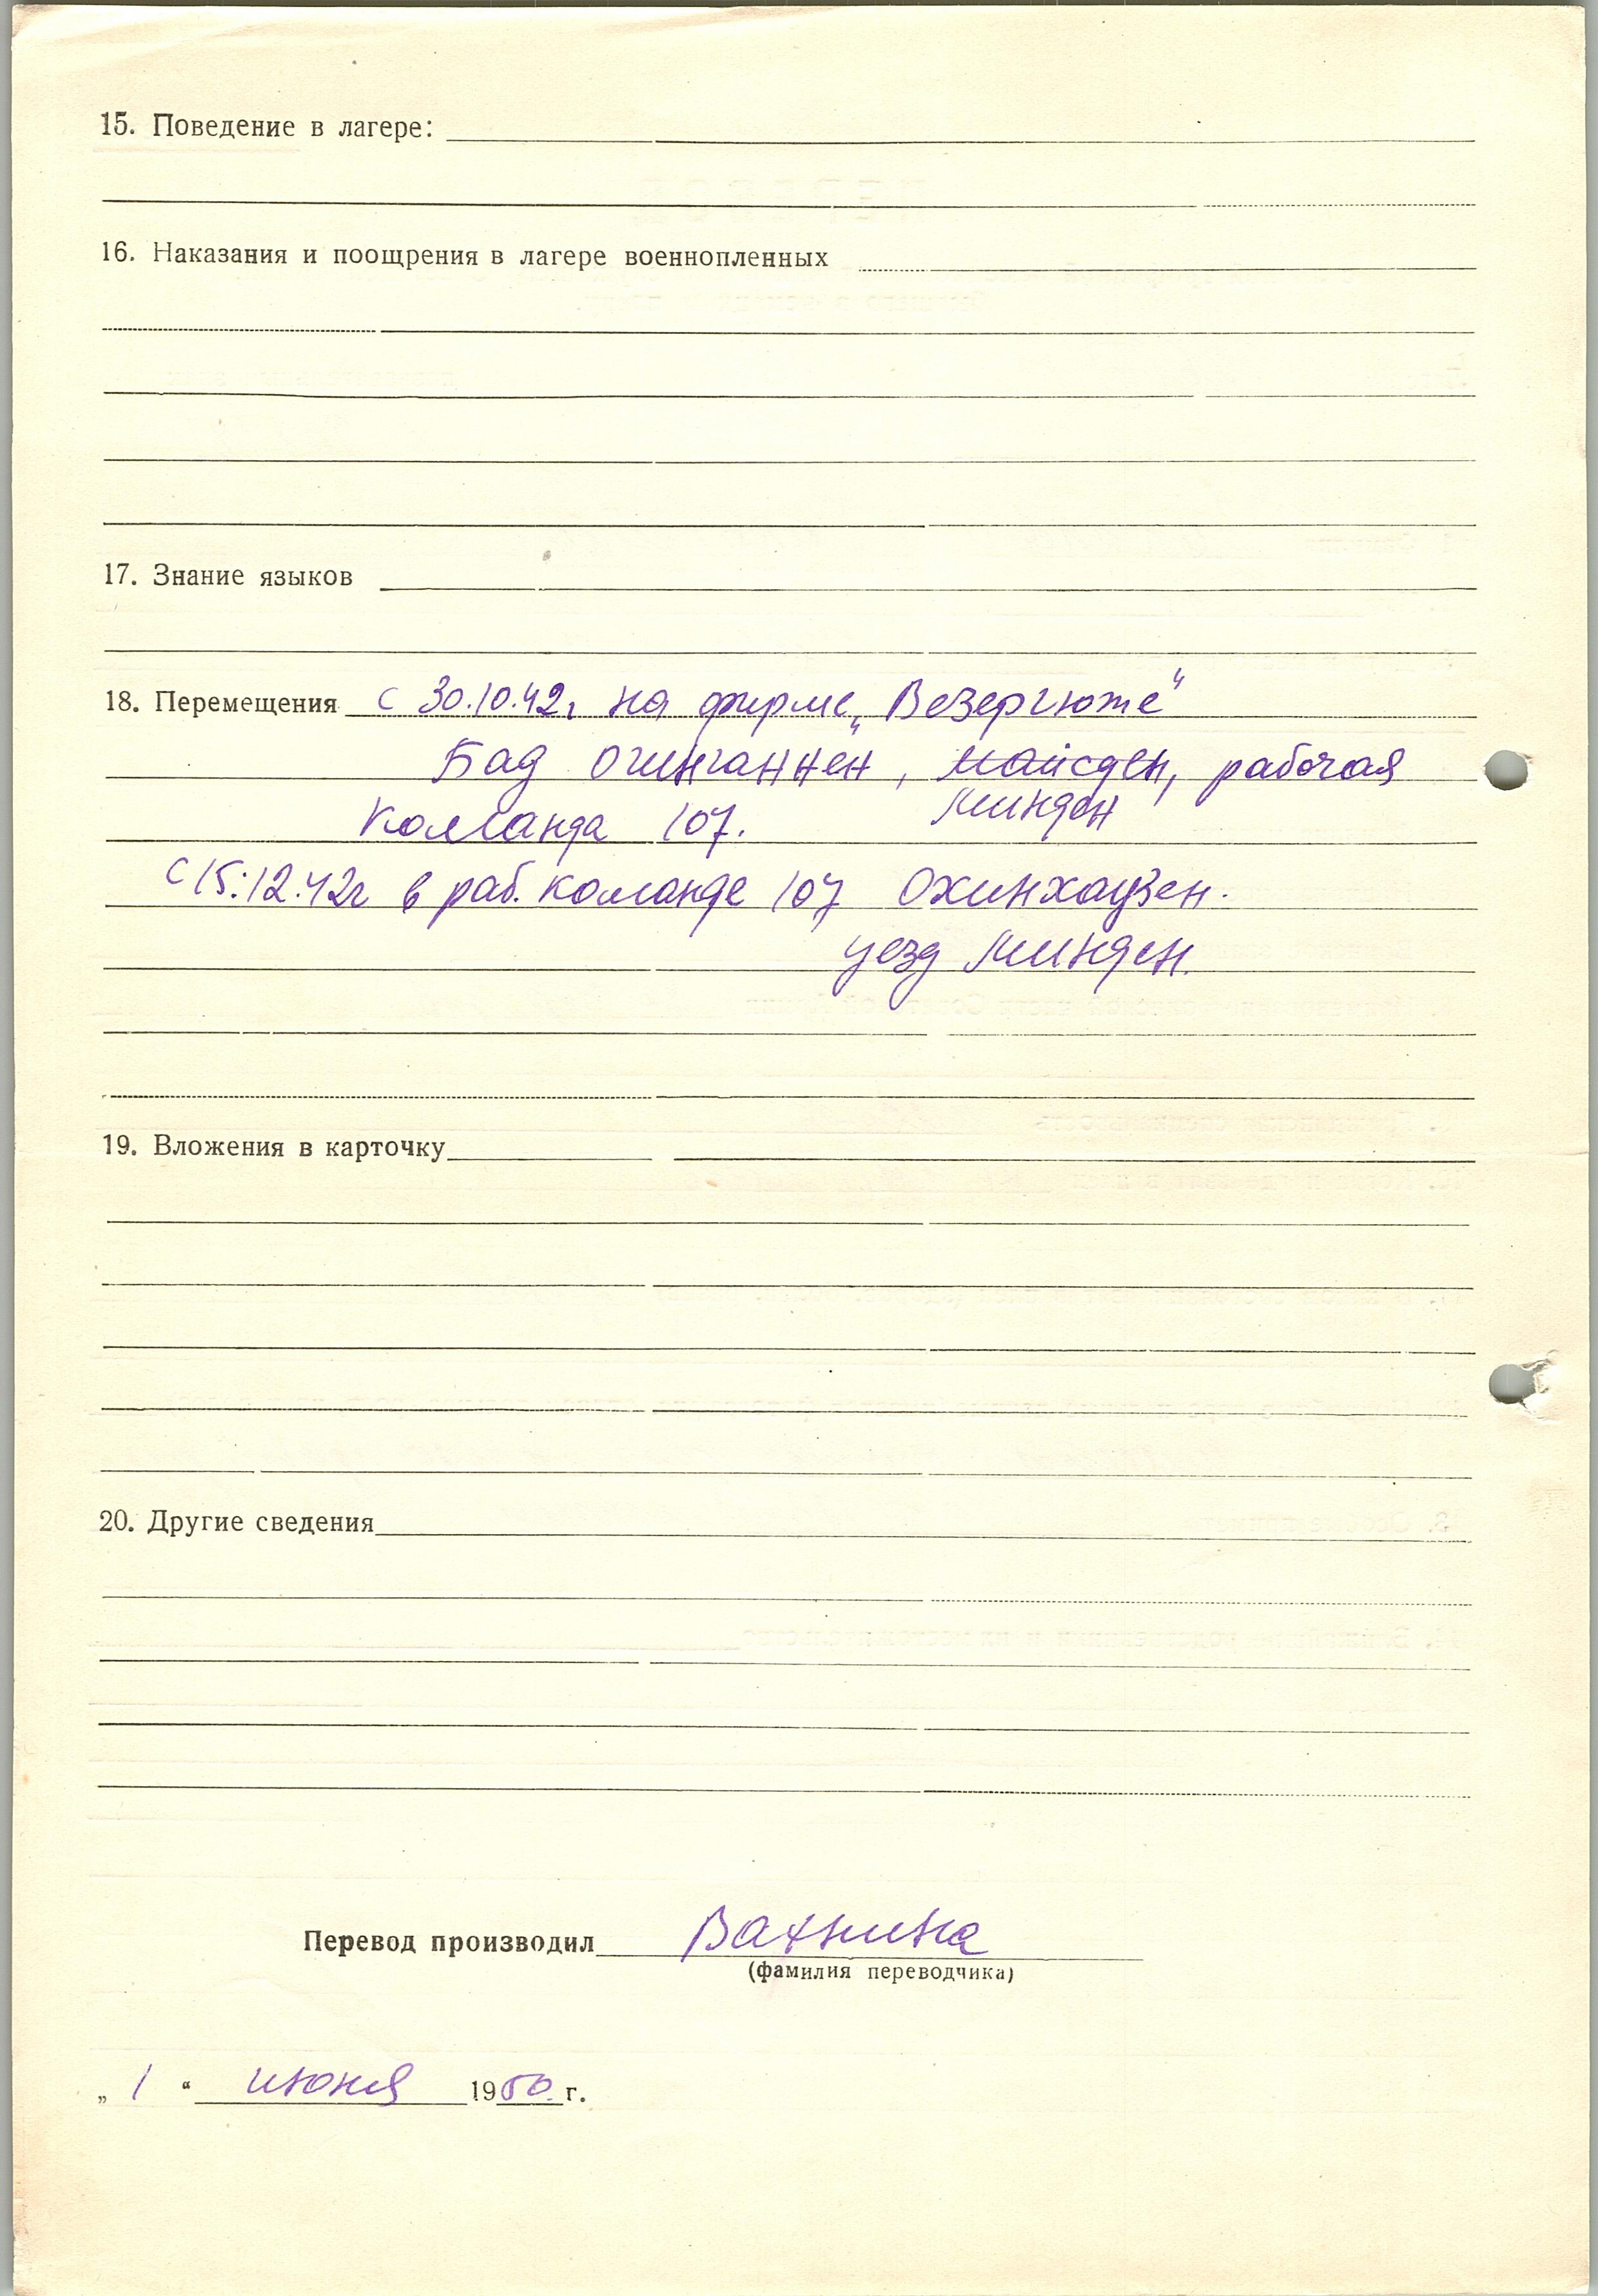 15. Поведение в лагере:
16. Наказания и поощрения в лагере военнопленных
17. Знание языков
18. Перемещения с 30.10.42г на фирме „Везергюте"
Бад Огинганнен, Майсден, рабочая
Минден
команда 107.
с 15.12.42г в раб. команде 107 Охинхаузен.
уезд Минден.
19. Вложения в карточку
20. Другие сведения
Перевод производил Вахнина
(фамилия переводчика)
„ 1 “ июня 1950 г.